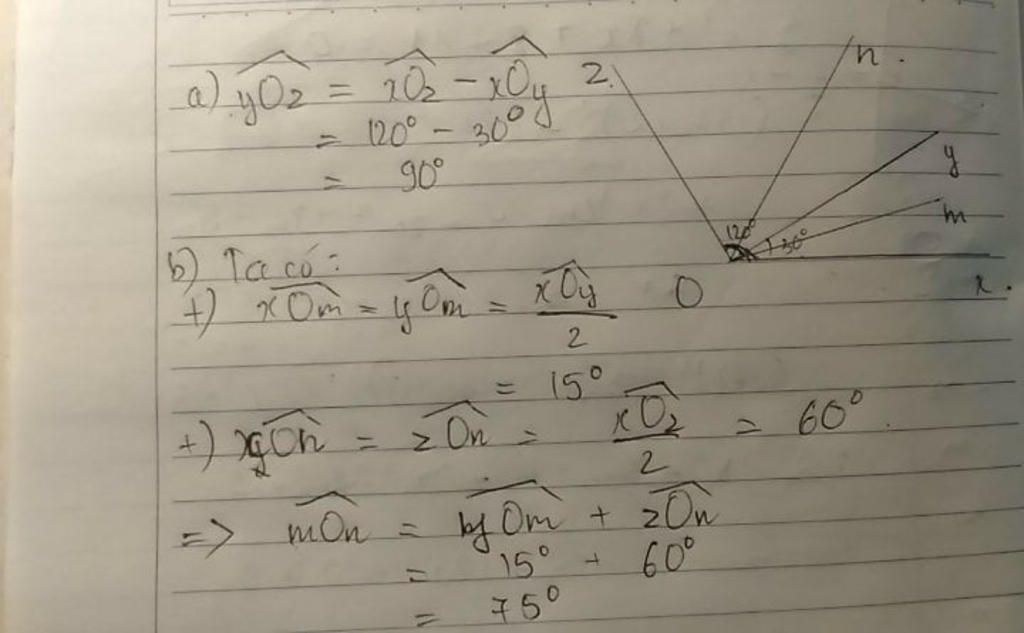 a) yOz = xOz - xOy
= 120° - 30°
= 90°
z
n.
y
m
120°
30°
O
x.
b) Ta có:
+) xOm = yOm = xOy
2
= 15°
+) xOn = zOn = xOz = 60°.
2
=> mOn = yOm + zOn
= 15° + 60°
= 75°